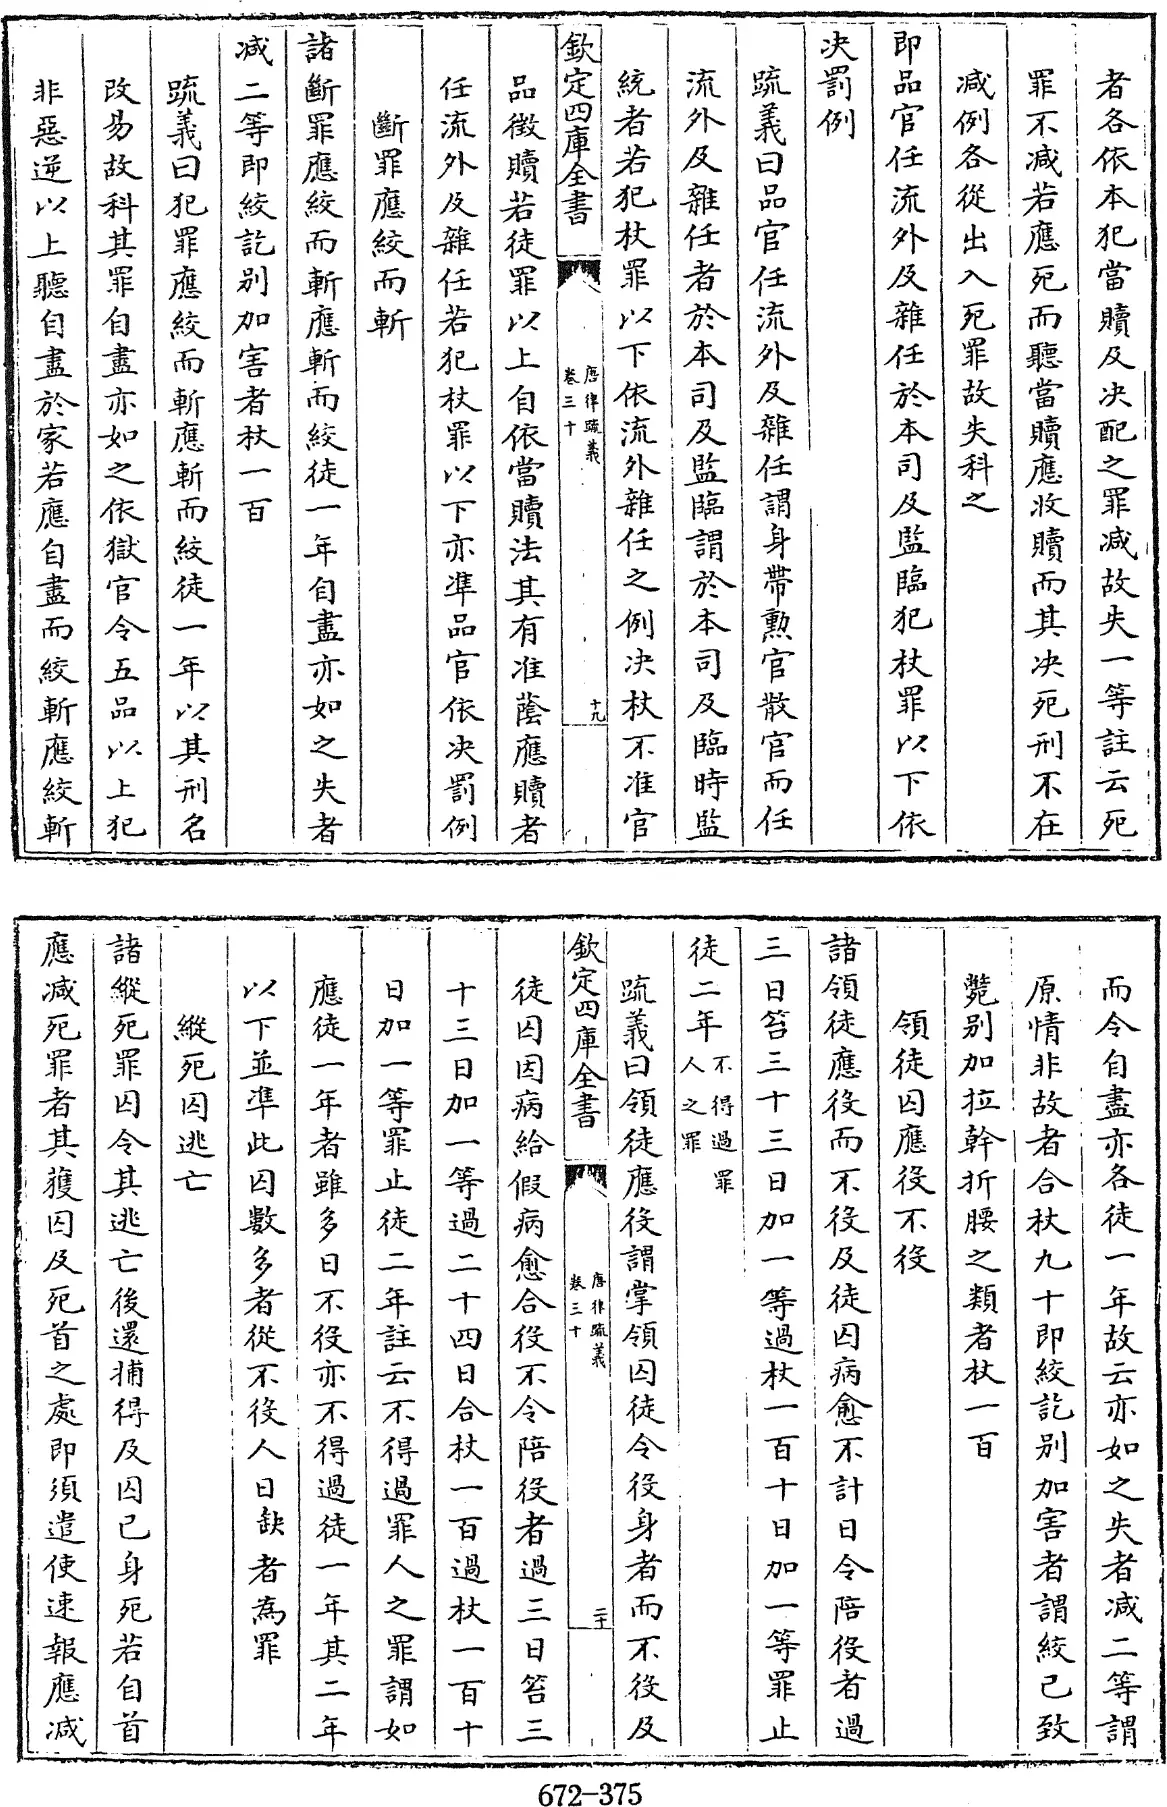 者各依本犯當贖及决配之罪减故失一等註云死
罪不减若應死而聽當贖應收贖而其决死刑不在
减例各從出入死罪故失科之
即品官任流外及雜任於本司及監臨犯杖罪以下依
决罰例
疏義曰品官任流外及雜任謂身帶勲官散官而任
流外及雜任者於本司及監臨謂於本司及臨時監
統者若犯杖罪以下依流外雜任之例决杖不准官
欽定四庫全書
唐律疏義
卷三十
十九
品徵贖若徒罪以上自依當贖法其有准蔭應贖者
任流外及雜任若犯杖罪以下亦凖品官依决罰例
斷罪應絞而斬
諸斷罪應絞而斬應斬而絞徒一年自盡亦如之失者
减二等即絞訖别加害者杖一百
疏義曰犯罪應絞而斬應斬而絞徒一年以其刑名
改易故科其罪自盡亦如之依獄官令五品以上犯
非惡逆以上聽自盡於家若應自盡而絞斬應絞斬
而令自盡亦各徒一年故云亦如之失者减二等謂
原情非故者合杖九十即絞訖别加害者謂絞已致
斃别加拉幹折腰之類者杖一百
領徒囚應役不役
諸領徒應役而不役及徒囚病愈不計日令陪役者過
三日笞三十三日加一等過杖一百十日加一等罪止
徒二年不得過罪人之罪
疏義曰領徒應役謂掌領囚徒令役身者而不役及
欽定四庫全書
唐律疏義
卷三十
二十
徒囚因病給假病愈合役不令陪役者過三日笞三
十三日加一等過二十四日合杖一百過杖一百十
日加一等罪止徒二年註云不得過罪人之罪謂如
應徒一年者雖多日不役亦不得過徒一年其二年
以下並凖此囚數多者從不役人日缺者為罪
縱死囚逃亡
諸縱死罪囚令其逃亡後還捕得及囚已身死若自首
應减死罪者其獲囚及死首之處即須遣使速報應减
672-375